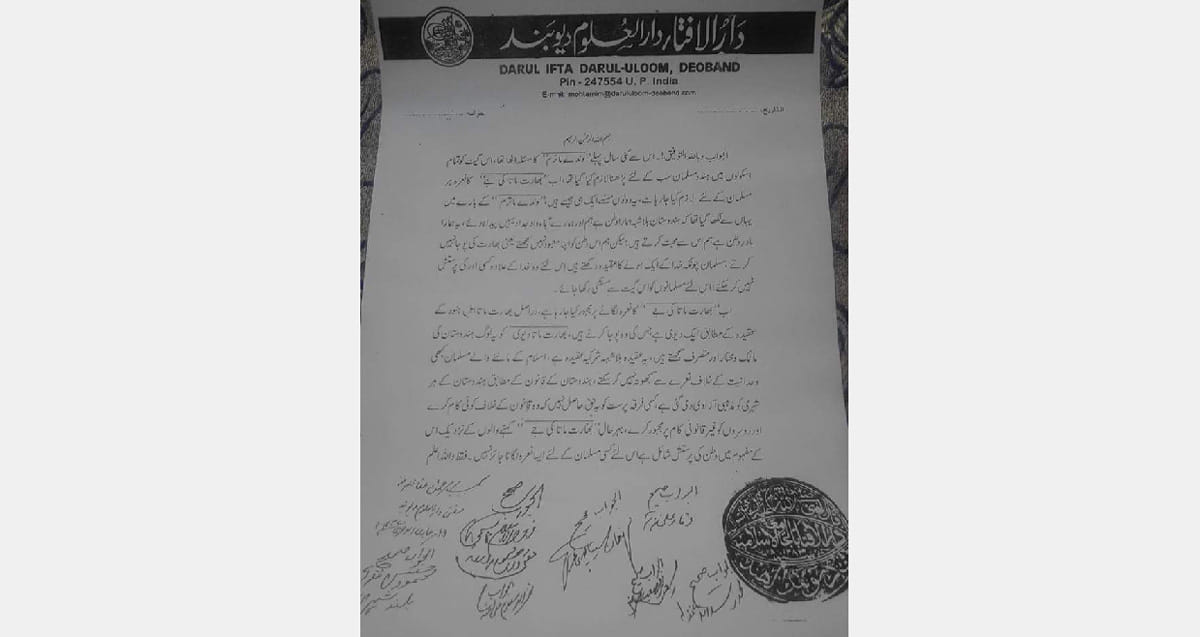 دارُ الافتاء دارُ العُلوم دیوبَند
DARUL IFTA DARUL-ULOOM, DEOBAND
Pin - 247554 U. P. India
E-mail: mohtamim@darululoom-deoband.com
التاریخ: حوالہ
بسم اللہ الرحمٰن الرحیم
الجواب وباللہ التوفیق! اس سے کئی سال پہلے ''وندے ماترم'' کا مسئلہ اٹھا تھا، اس گیت کو تمام
اسکولوں میں ہندو مسلمان سب کے لئے پڑھنا لازم کیا گیا تھا، اب ''بھارت ماتا کی جے'' کا نعرہ ہر
مسلمان کے لئے لازم کیا جا رہا ہے، یہ دونوں مسئلے ایک ہی جیسے ہیں۔ ''وندے ماترم'' کے بارے میں
یہاں سے لکھا گیا تھا کہ ہندوستان بلاشبہ ہمارا وطن ہے ہم اور ہمارے آباء واجداد یہیں پیدا ہوئے، یہ ہمارا
مادر وطن ہے ہم اس سے محبت کرتے ہیں؛ لیکن ہم اس وطن کو اپنا معبود نہیں سمجھتے یعنی بھارت کی پوجا نہیں
کرتے، مسلمان چونکہ خدا کے ایک ہونے کا عقیدہ رکھتے ہیں اس لئے وہ خدا کے علاوہ کسی اور کی پرستش
نہیں کر سکتے؛ اس لئے مسلمانوں کو اس گیت سے مستثنیٰ رکھا جائے۔
اب ''بھارت ماتا کی جے'' کا نعرہ لگانے پر مجبور کیا جا رہا ہے، دراصل بھارت ماتا اہل ہنود کے
عقیدہ کے مطابق ایک دیوی ہے جس کی وہ پوجا کرتے ہیں، بھارت ماتا دیوی کو یہ لوگ ہندوستان کی
مالک ومختار اور متصرف سمجھتے ہیں، یہ عقیدہ بلاشبہ شرکیہ عقیدہ ہے، اسلام کے ماننے والے مسلمان کبھی
وحدانیت کے خلاف نعرے سے سمجھوتہ نہیں کر سکتے، ہندوستان کے قانون کے مطابق ہندوستان کے ہر
شہری کو مذہبی آزادی دی گئی ہے، کسی فرقہ پرست کو یہ حق حاصل نہیں کہ وہ قانون کے خلاف کوئی کام کرے
اور دوسروں کو غیر قانونی کام پر مجبور کرے، بہر حال ''بھارت ماتا کی جے'' کہنے والوں کے نزدیک اس
کے مفہوم میں وطن کی پرستش شامل ہے اس لئے کسی مسلمان کے لئے ایسا نعرہ لگانا جائز نہیں۔ فقط واللہ اعلم
الجواب صحیح
الجواب صحیح
الجواب صحیح
الجواب صحیح
الجواب صحیح
الجواب صحیح